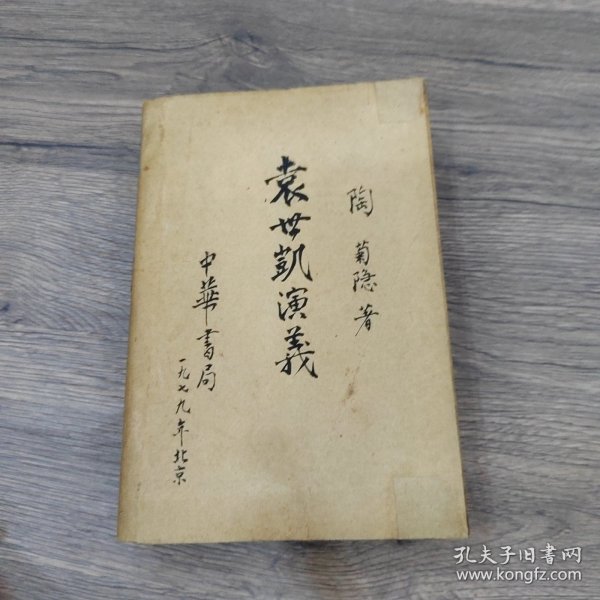 陶菊隐著
袁世凯演義
中華書局
一九七九年北京
孔夫子旧書网
www.kongfz.com